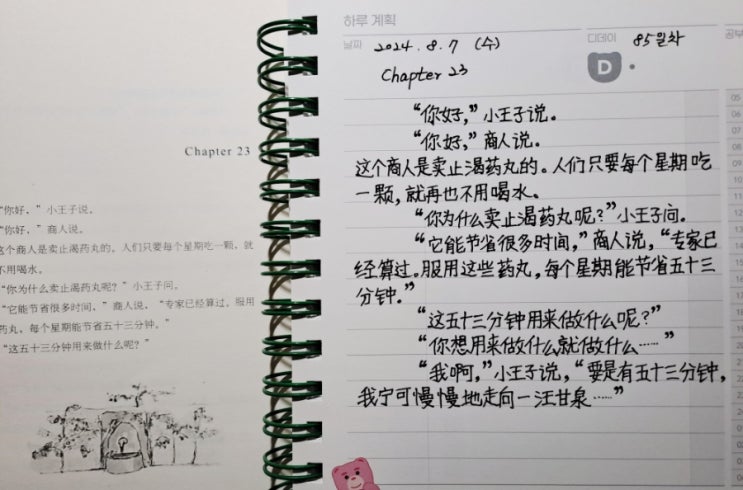 Chapter 23
"你好，"小王子说。
"你好，"商人说。
这个商人是卖止渴药丸的。人们只要每个星期吃一颗，就
不用喝水。
"你为什么卖止渴药丸呢？"小王子问。
"它能节省很多时间，"商人说，"专家已经算过。服用
药丸，每个星期能节省五十三分钟。"
"这五十三分钟用来做什么呢？"
하루 계획
날짜 2024.8.7 (수)
디데이 85일차
공부
D
Chapter 23
"你好，"小王子说。
"你好，"商人说。
这个商人是卖止渴药丸的。人们只要每个星期吃
一颗，就再也不用喝水。
"你为什么卖止渴药丸呢？"小王子问。
"它能节省很多时间，"商人说，"专家已
经算过。服用这些药丸，每个星期能节省五十三
分钟。"
"这五十三分钟用来做什么呢？"
"你想用来做什么就做什么……"
"我啊，"小王子说，"要是有五十三分钟，
我宁可慢慢地走向一汪甘泉……"
05
06
07
08
09
10
11
12
1
2
3
4
5
6
7
8